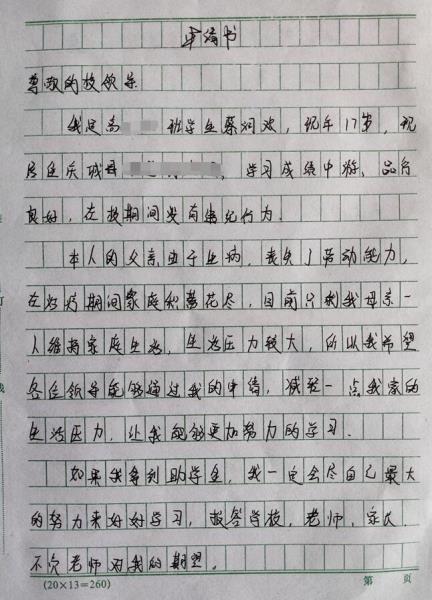 申请书
尊敬的校领导
我是高 班学生蔡润欢，现年17岁，现
居住庆城县 ，学习成绩中游、品行
良好，在校期间没有违纪行为．
本人的父亲由于生病，丧失了劳动能力，
在治疗期间家庭积蓄花尽，目前只剩我母亲一
人维持家庭生活，生活压力较大，所以我希望
各位领导能够通过我的申请，减轻一点我家的
生活压力，让我能够更加努力的学习．
如果我拿到助学金，我一定会尽自己最大
的努力来好好学习，报答学校，老师，家长．
不负老师对我的期望．
(20×13=260) 第 页